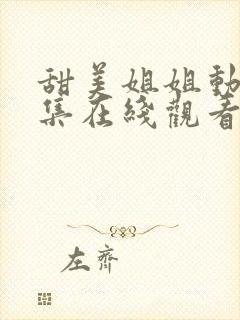 甜美姐姐動
集在綫觀看
左齊